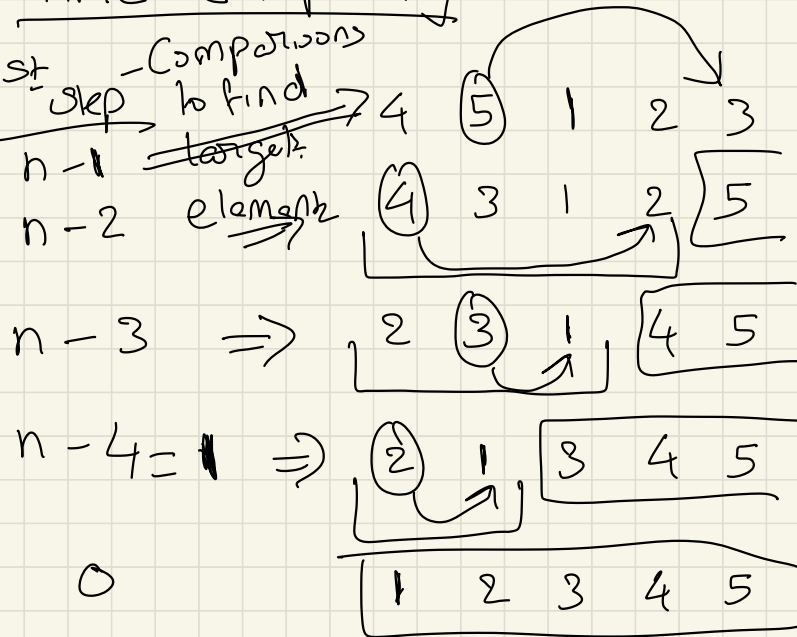 st step - Comparisons to find target element
n - 1 => 4 5 1 2 3
n - 2 => 4 3 1 2 5
n - 3 => 2 3 1 4 5
n - 4 = 1 => 2 1 3 4 5
0 1 2 3 4 5